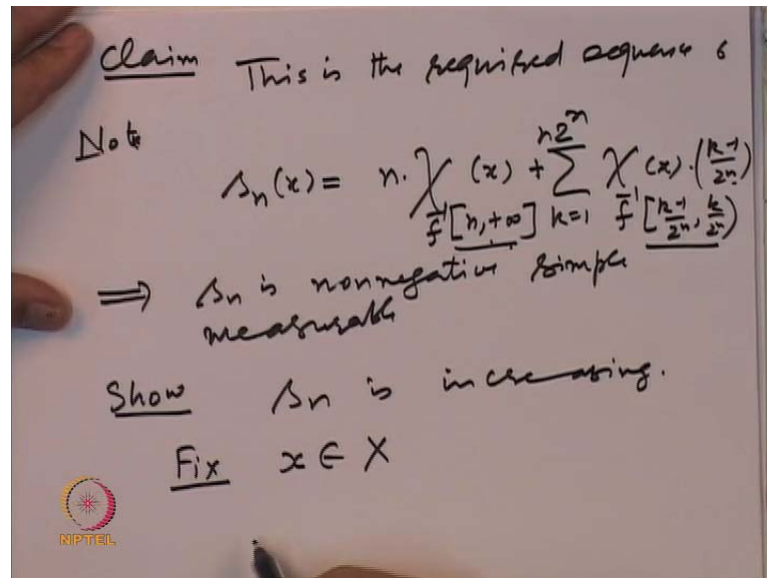 Claim This is the required sequence
Note
s_n(x) = n. χ_{f^{-1}[n, +∞]} (x) + Σ_{k=1}^{n2^n} χ_{f^{-1}[\frac{k-1}{2^n}, \frac{k}{2^n})} (x) . (\frac{k-1}{2^n})
⟹ s_n is nonnegative simple
measurable
Show s_n is increasing.
Fix x ∈ X
NPTEL